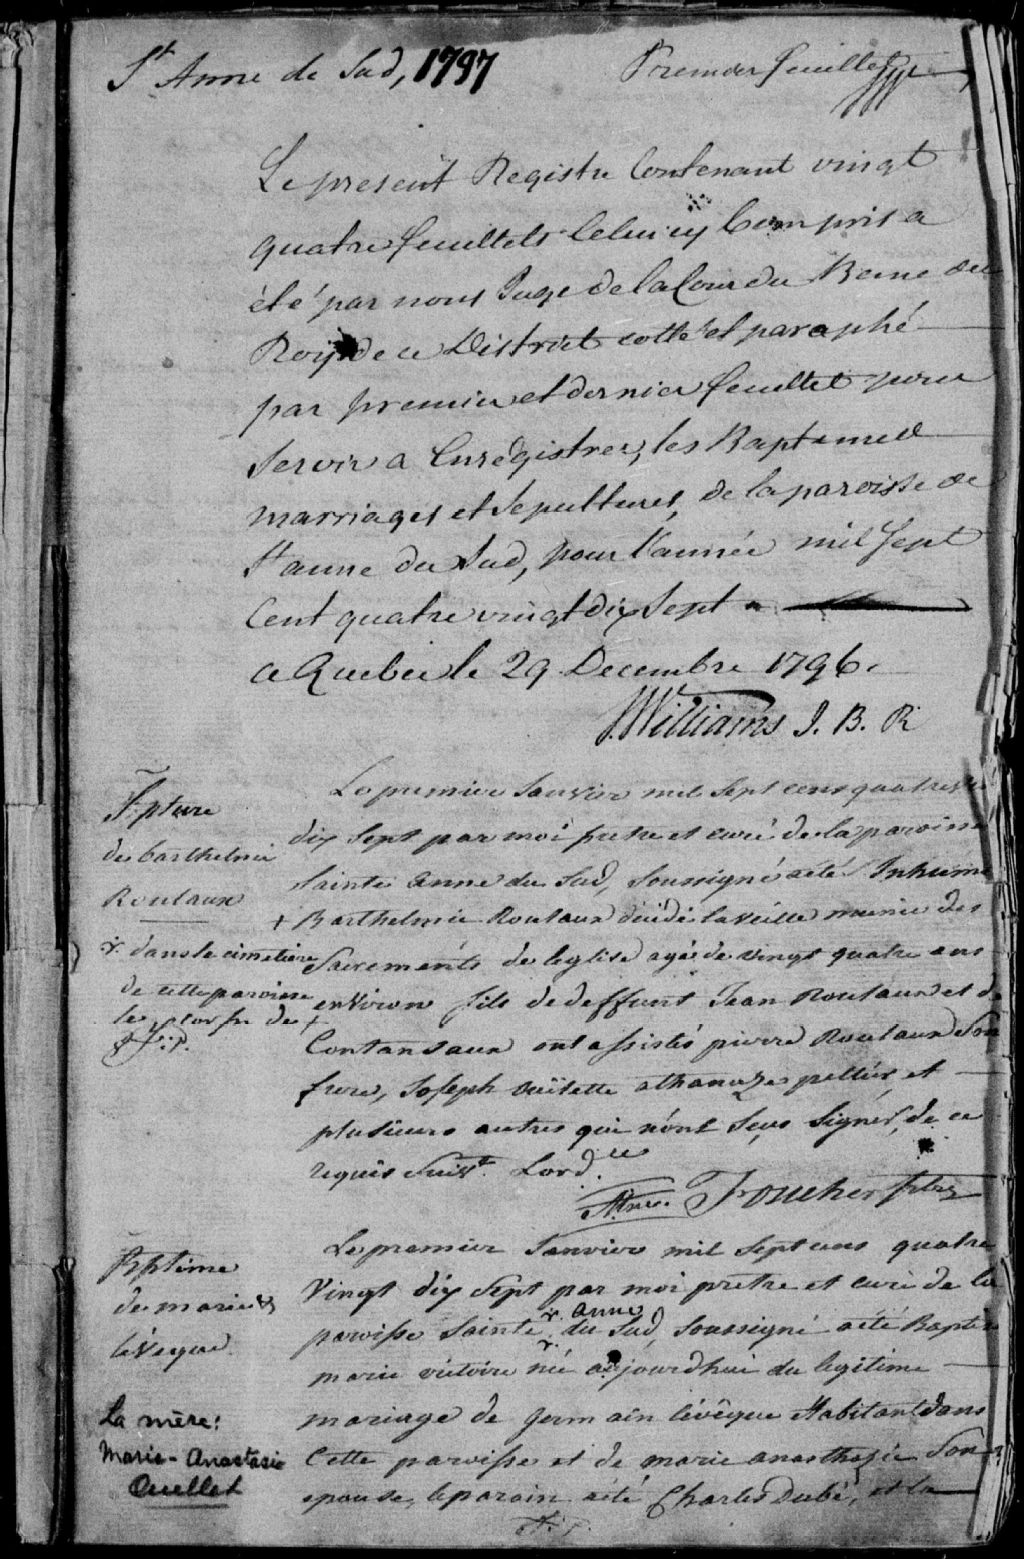 St Anne de Sud, 1797
Premier feuillet
Le present Registre Contenant vingt
quatre feuillets Celuicy Compris a
été par nous Juge de la Cour du Banc du
Roy de ce District cotté et paraphé
par premier et dernier feuillet pour
Servir a Enrégistrer, les Baptemes
marriages et Sepultures, de la paroisse de
Ste anne du Sud, pour l'année mil Sept
Cent quatre vingt dix Sept
a Quebec le 29 Decembre 1796.
J. Williams J. B. R
S:pture
de barthelmie
Routaux
+ dans le cimetiere
de cette paroisse
le corps de +
Le premier Janvier mil Sept cens quatre
dix Sept par moi pretre et curé de la paroisse
Sainte anne du Sud, Soussigné aété Inhumé
+ Barthelmie Routaux décédé la veille munie des
Sacreménts de leglise agé de vingt quatre ans
environ fils de deffunt Jean Routaux et de
Contansaux ont assistés pierre Routaux Son
frere, Joseph ouïlette athanaze pelletiér, et
plusieurs autres qui n'ónt Sçus Signér, de ce
requis Suivt. Lord.ce
Foucher ptre
Bptême
de marie v
lévêque
La mère:
Marie-Anastasie
Ouellet
Le premier Janvier mil Sept cens quatre
Vingt dix Sept par moi pretre et curé de la
v. anne
paroisse Sainte v. du Sud, Soussigné aété Baptisé
marie victoire née aujourdhui du legitime
mariage de Germain lévêque Habitant dans
Cette paroisse et de marie anasthasie Son
epouse, le parain aété Charles Dubé, et la